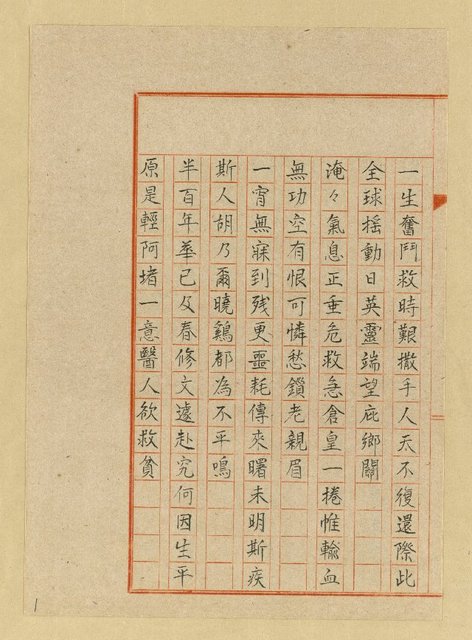 一生奮鬥救時艱撒手人天不復還際此
全球搖動日英靈端望庇鄉關
淹々氣息正垂危救急倉皇一捲帷輸血
無功空有恨可憐愁鎖老親眉
一宵無寐到残更噩耗傳來曙未明斯疾
斯人胡乃爾曉鷄都為不平鳴
半百年華已及春修文遽赴究何因生平
原是輕阿堵一意醫人欲救貧
1